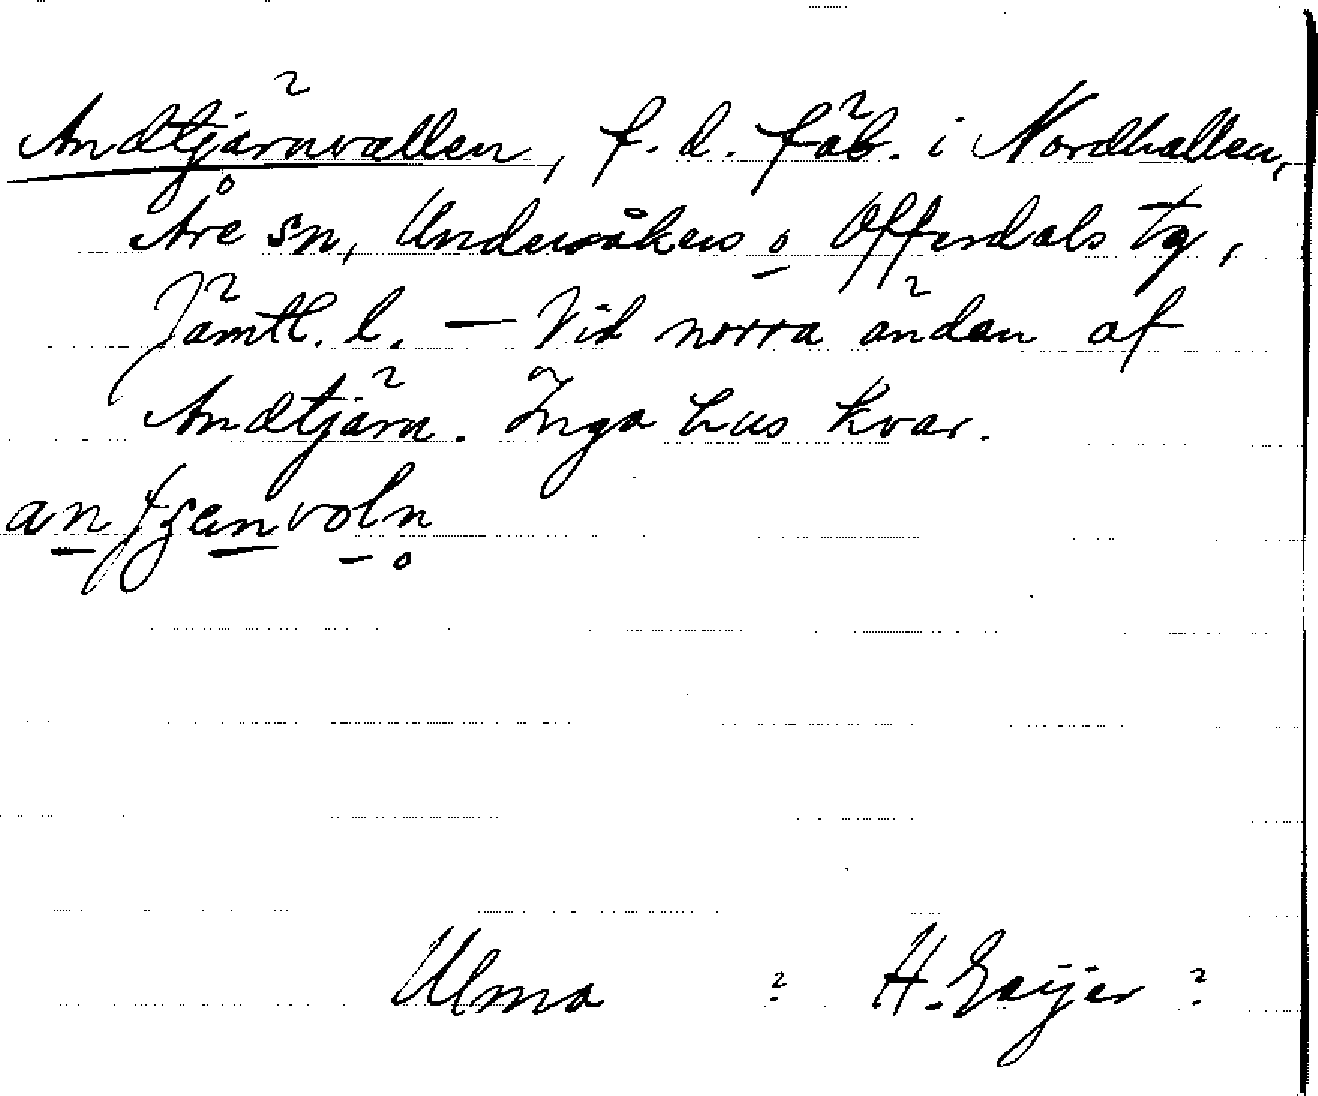 Andtjärnvallen, f. d. fäb. i Nordhallen,
Åre sn, Undersåkers o Offerdals tg,
Jämtl. l. — Vid norra ändan af
Andtjärn. Inga hus kvar.
Ulma : H. Geijer :